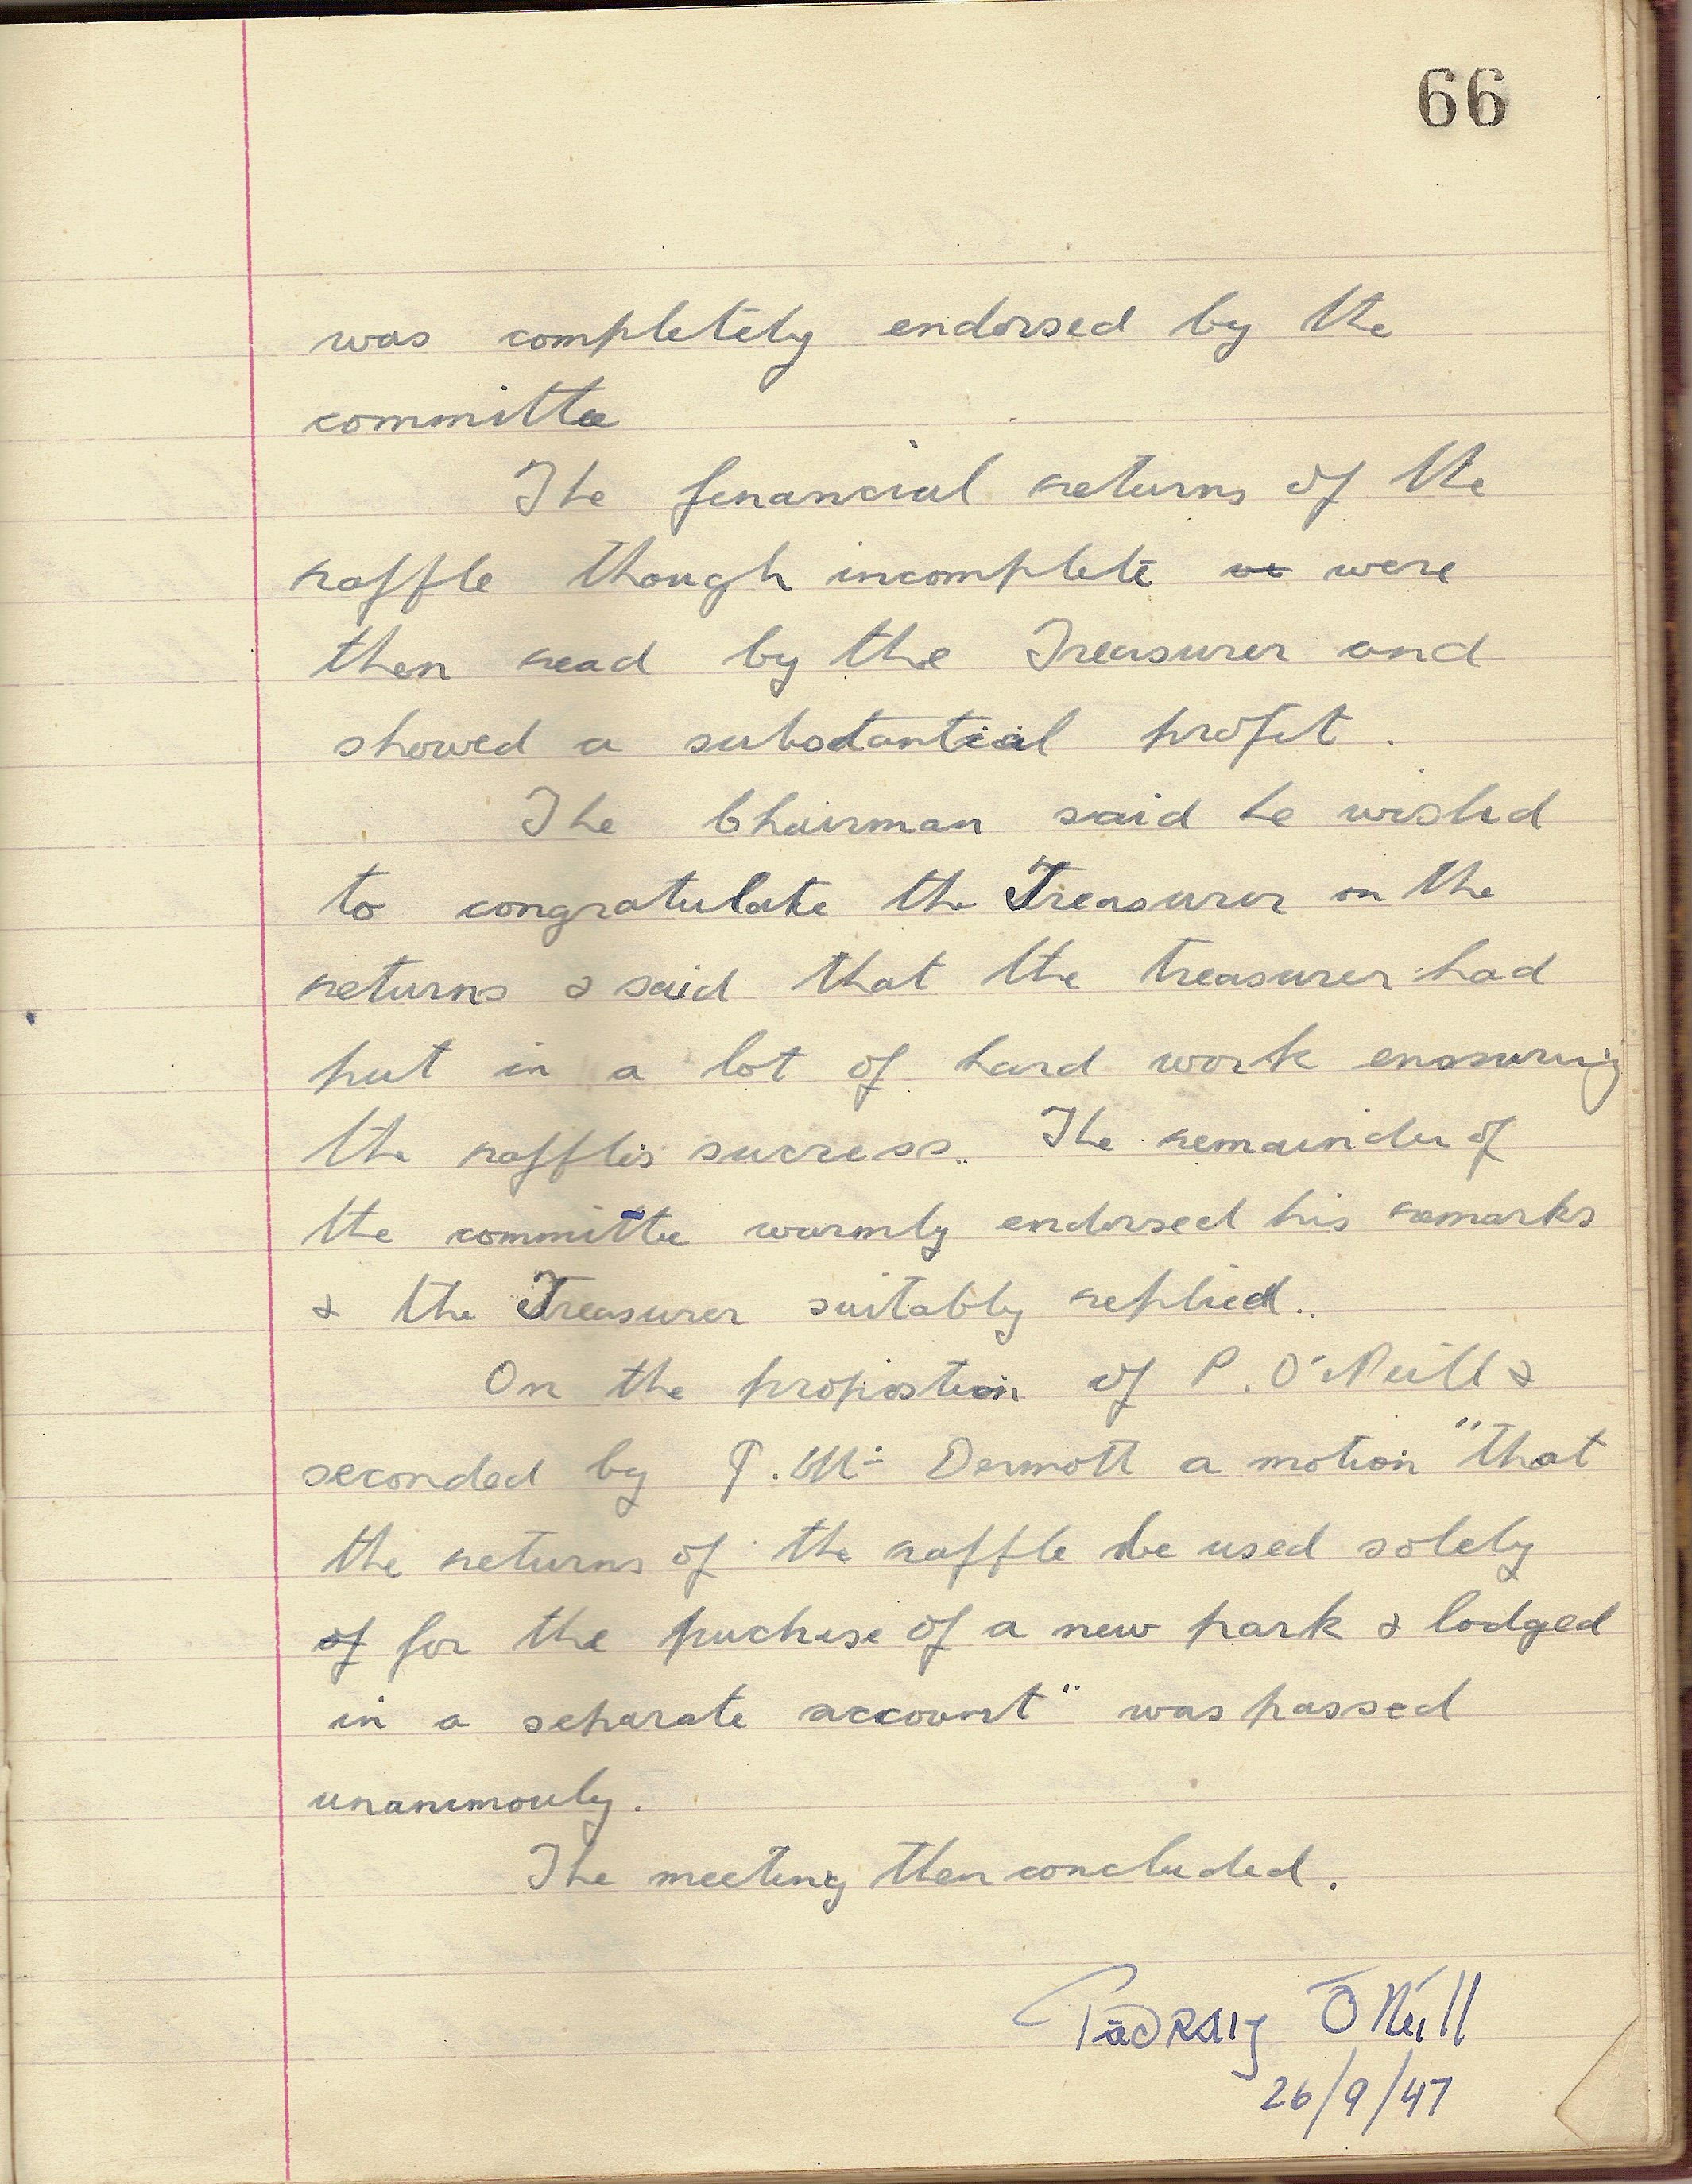 66
was completely endorsed by the
committee
The financial returns of the
raffle though incomplete we were
then read by the Treasurer and
showed a substantial profit.
The Chairman said he wished
to congratulate the Treasurer on the
returns & said that the treasurer had
put in a lot of hard work enssuring
the raffles success. The remainder of
the committee warmly endorsed his remarks
& the Treasurer suitably replied.
On the propostion of P. O'Neill &
seconded by P. Mc Dermott a motion "that
the returns of the raffle be used solely
of for the puchase of a new park & lodged
in a separate account" was passed
unanimouly.
The meeting then concluded.
Pádraig Ó Néill
26/9/47